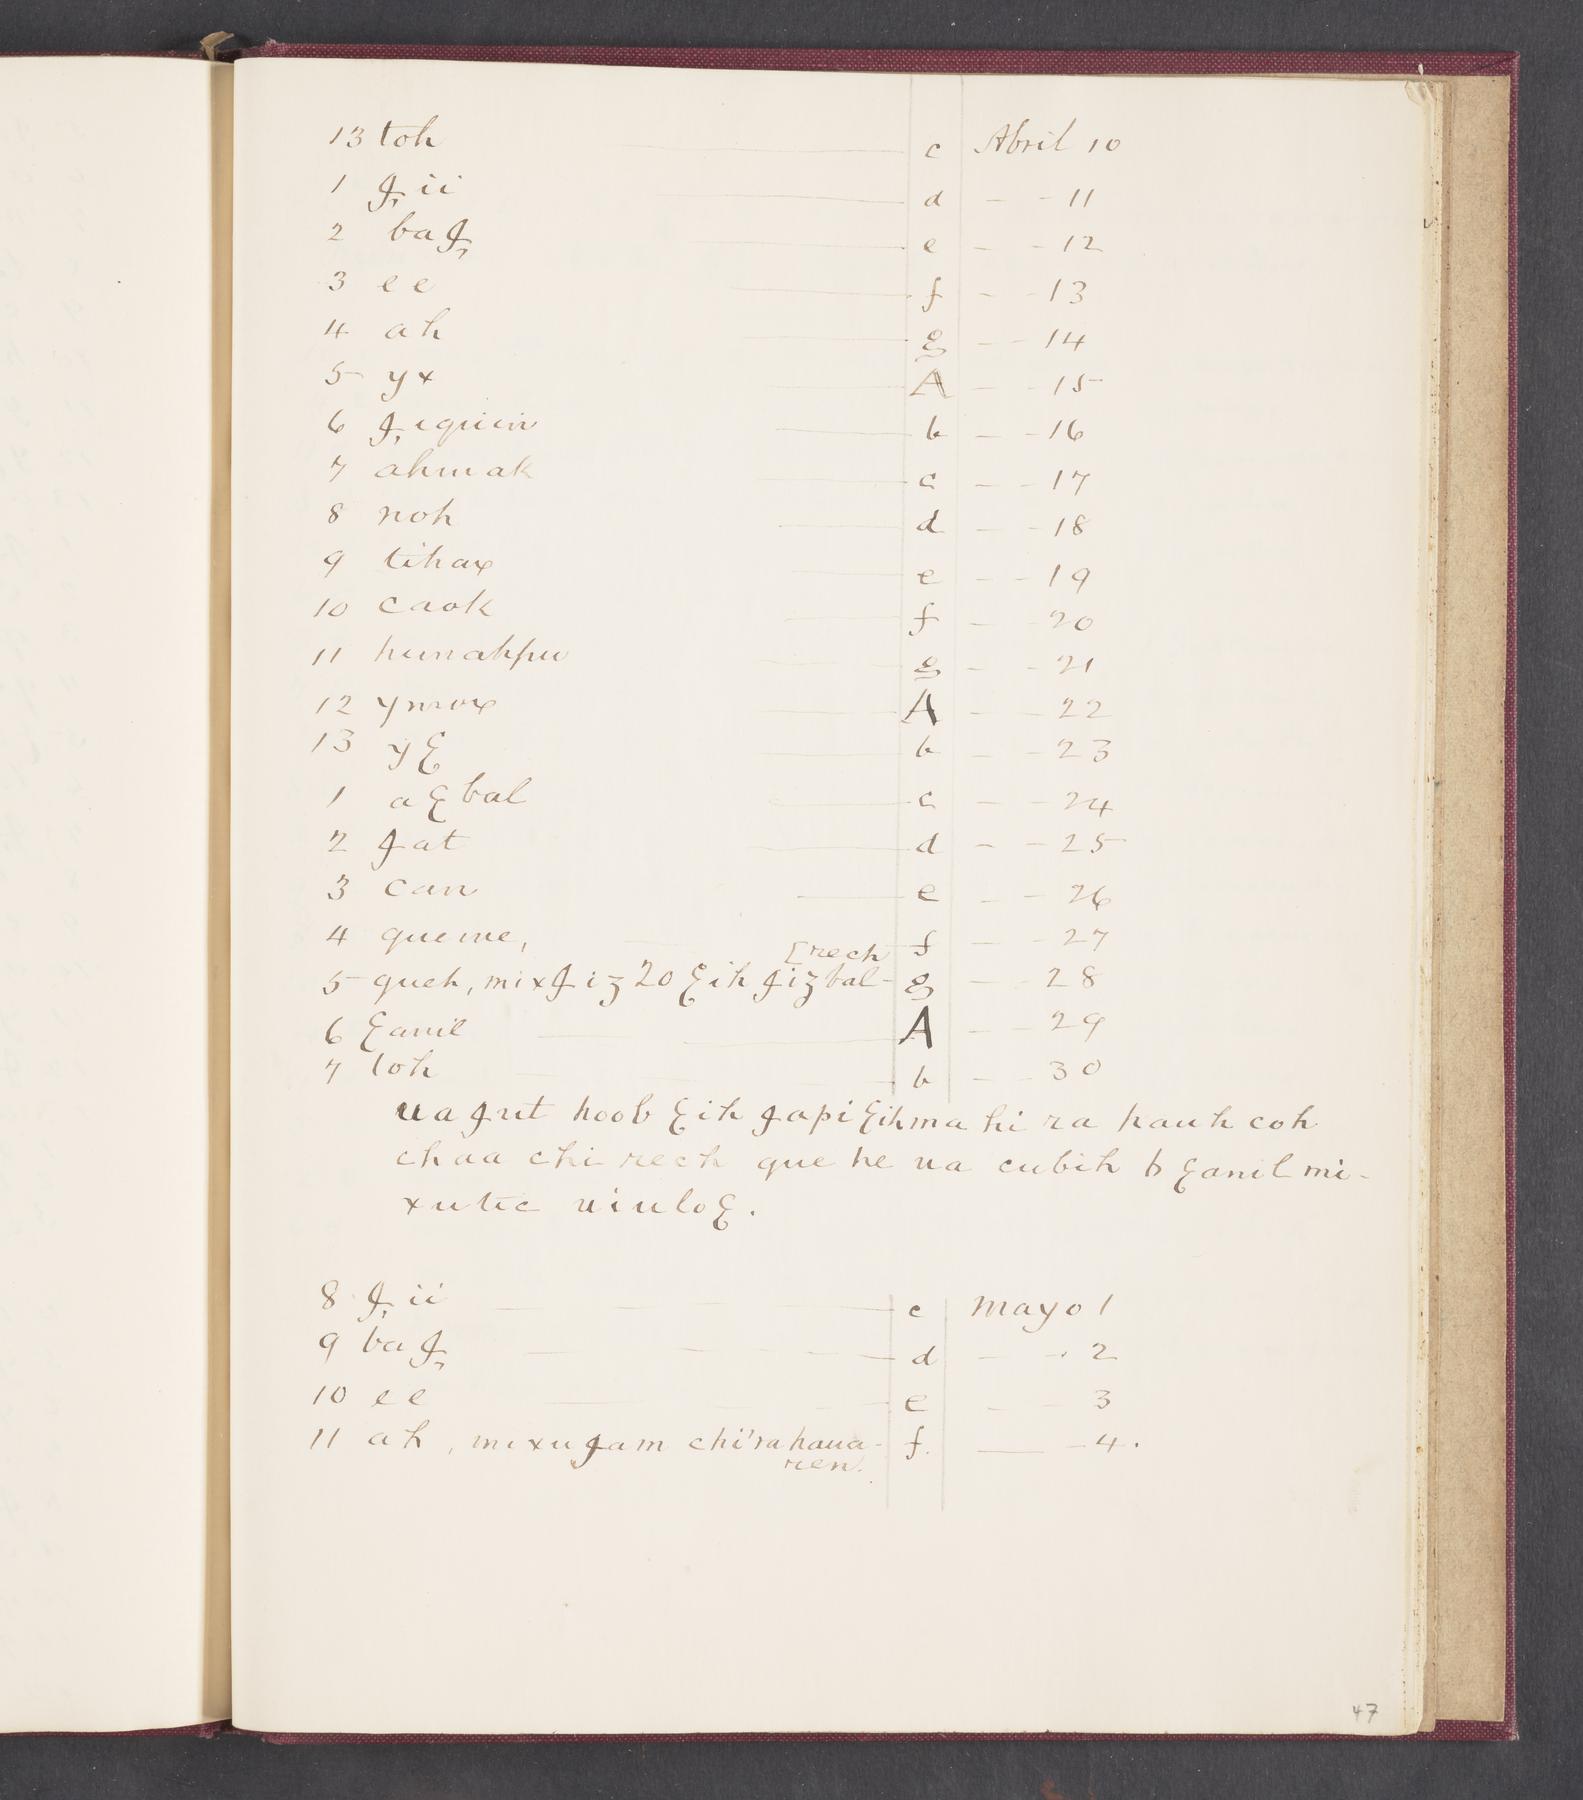 13 toh c Abril 10
1 ꜯii d — - 11
2 baꜯ e — - 12
3 ee f — - 13
4 ah g — - 14
5 yx A — - 15
6 ꜯiquin b — - 16
7 ahmak c — - 17
8 noh d — - 18
9 tihax e — - 19
10 caok f — - 20
11 hunahpu g — - 21
12 ymox A — - 22
13 yꜫ b — - 23
1 aꜫbal c — - 24
2 ꜭat d — - 25
3 can e — - 26
4 queme, f — - 27
[rech
5 queh, mixꜭiz 20 ꜫih ꜭizbal- g — 28
6 ꜫanil A — - 29
7 toh b — - 30
ua ꜭut hoob ꜫih ꜭapi ꜫih ma hi ra hauh coh
chaa chi rech que he ua cubih b ꜫanil mi-
xutic uiuloꜫ.
8 ꜯii c mayo 1
9 baꜯ d — - 2
10 ee e — - 3
11 ah, mixuꜭam chi'rahaua- f. — - 4.
ren.
47